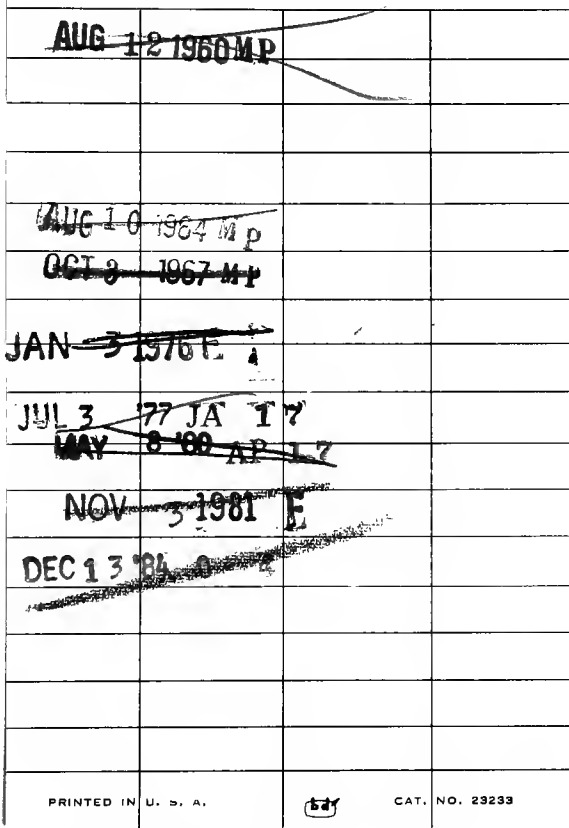 AUG 12 1960 M P
AUG 10 1964 M P
OCT 3 1967 M P
JAN 3 1976 E
JUL 3 '77 JA 17
MAY 8 '80 AP 17
NOV 3 1981 E
DEC 13 '84
PRINTED IN U. S. A. bdr CAT. NO. 23233